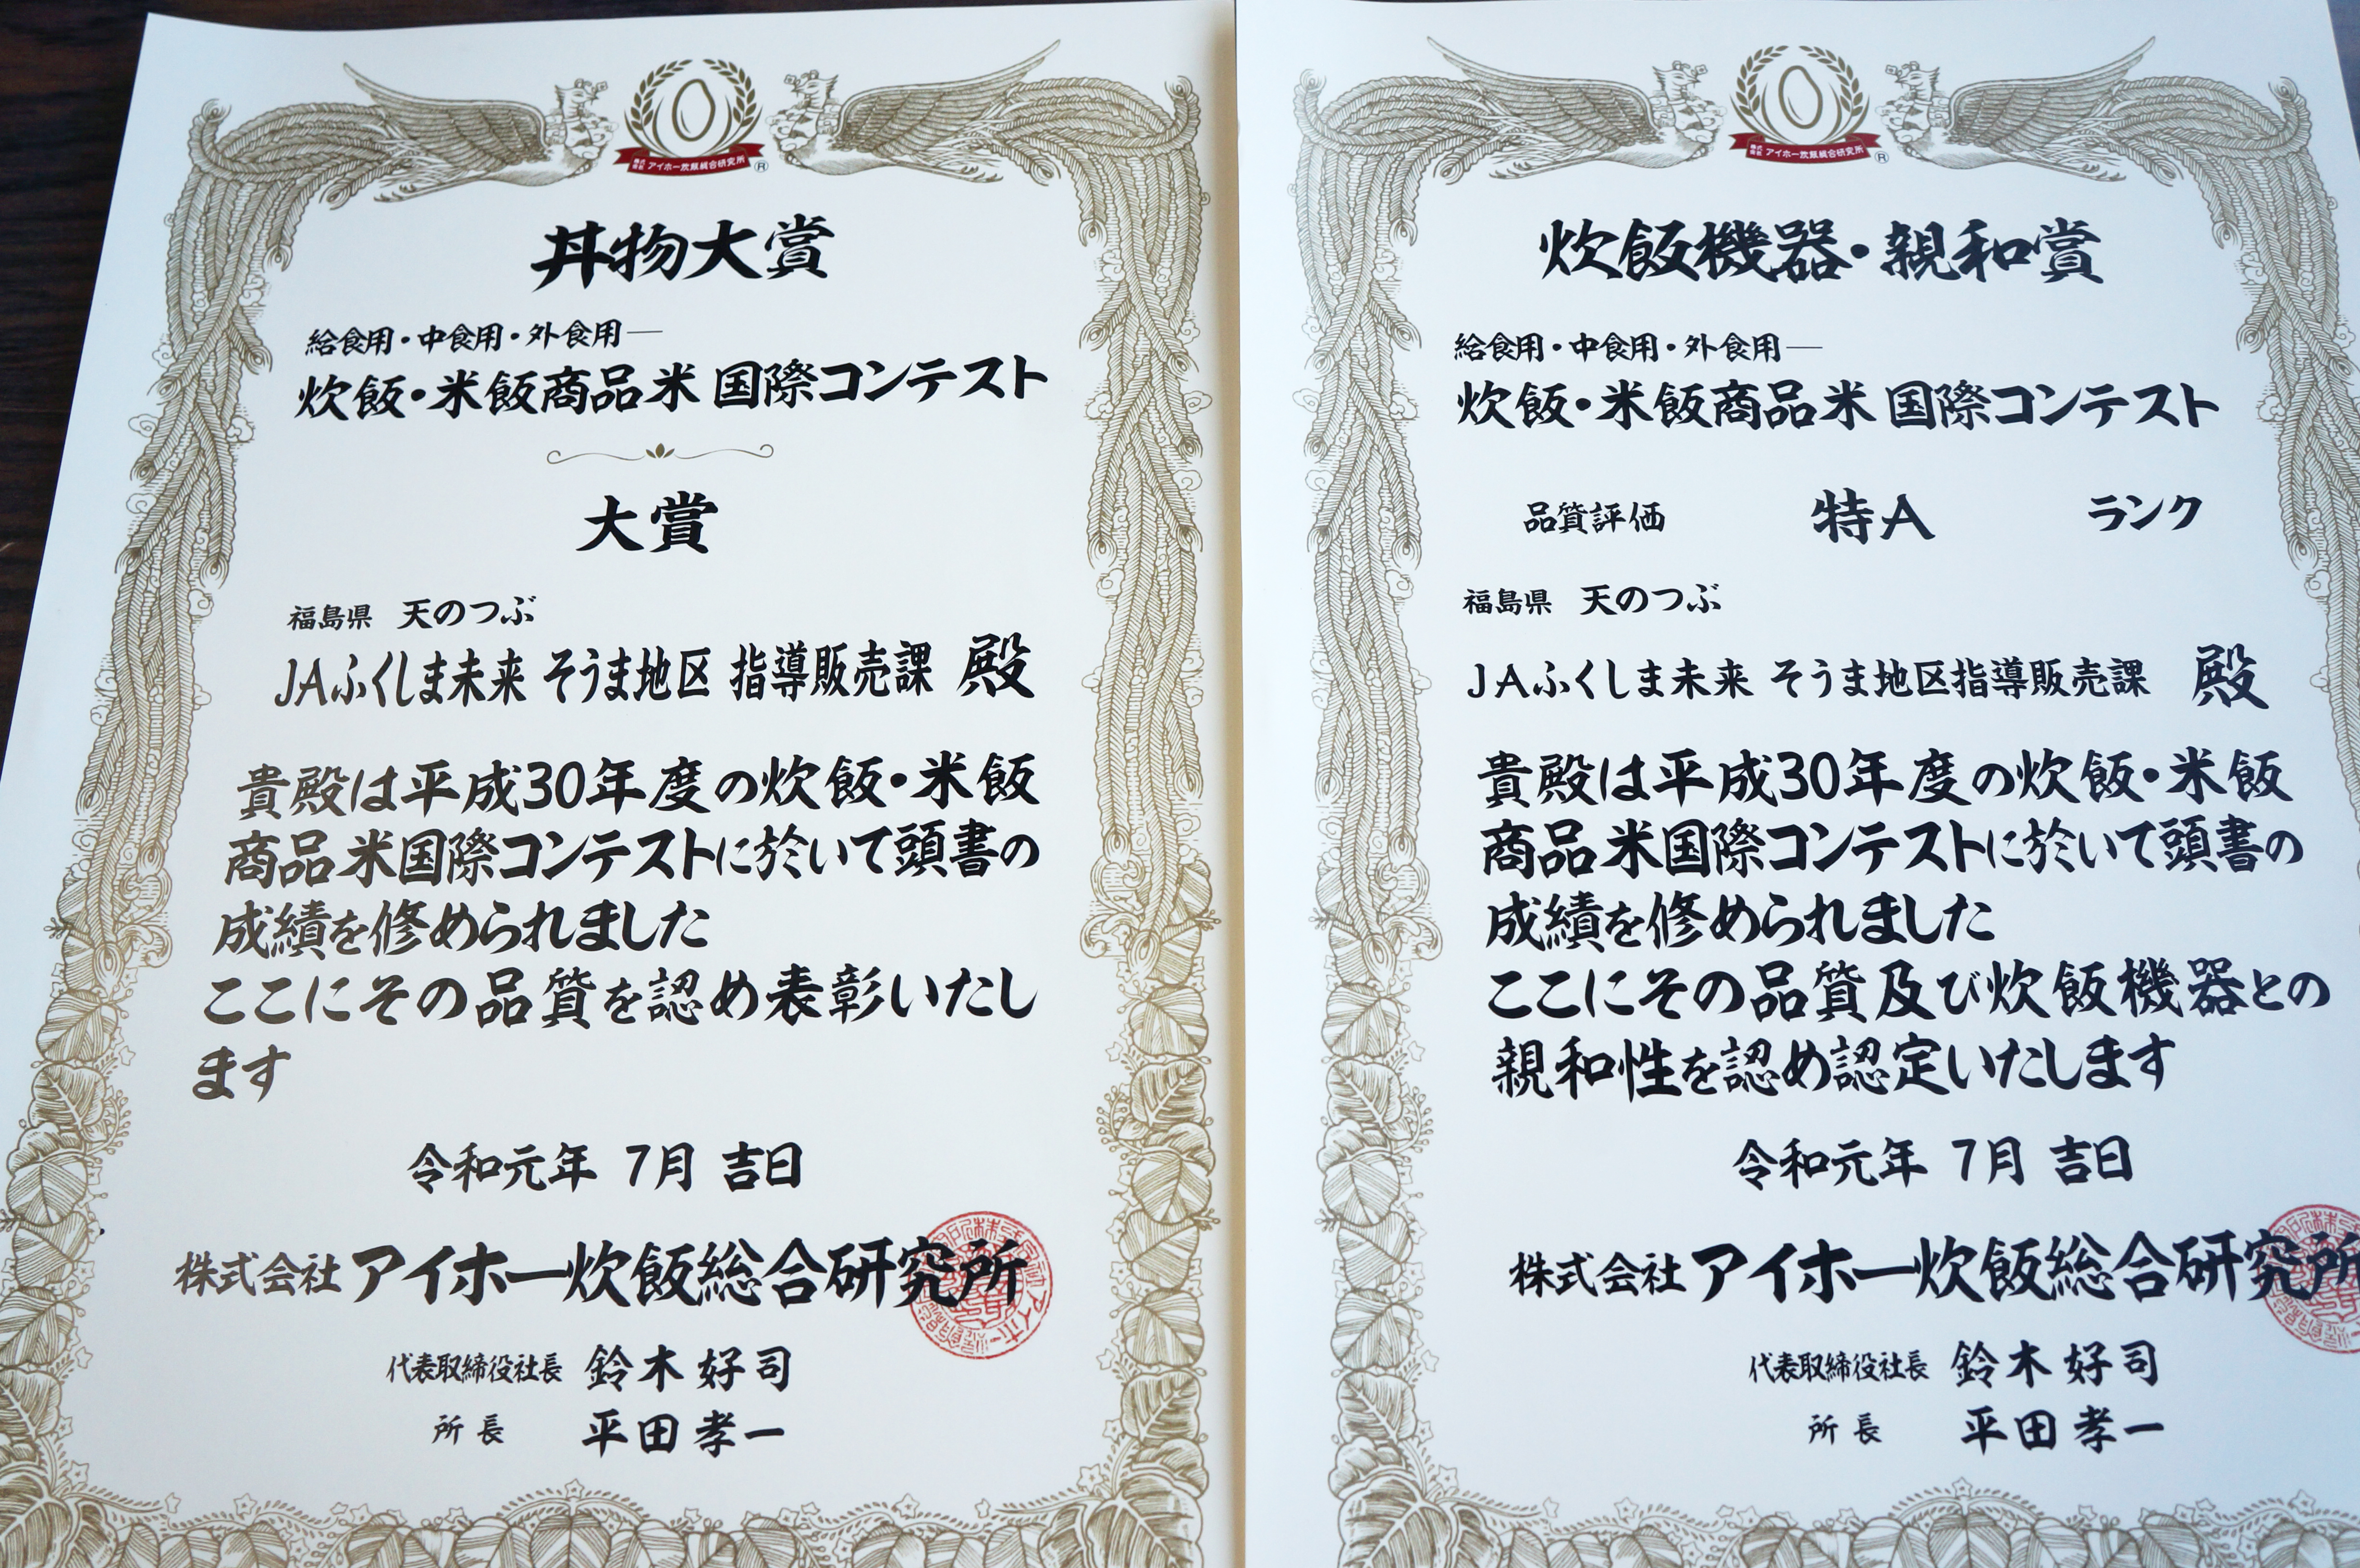 株式会社 アイホー炊飯総合研究所 ®
丼物大賞
給食用・中食用・外食用―
炊飯・米飯商品米 国際コンテスト
大賞
福島県 天のつぶ
JAふくしま未来 そうま地区 指導販売課 殿
貴殿は平成30年度の炊飯・米飯
商品米国際コンテストに於いて頭書の
成績を修められました
ここにその品質を認め表彰いたし
ます
令和元年 7月 吉日
株式会社 アイホー炊飯総合研究所
代表取締役社長 鈴木好司
所長 平田孝一
株式会社 アイホー炊飯総合研究所 ®
炊飯機器・親和賞
給食用・中食用・外食用―
炊飯・米飯商品米 国際コンテスト
品質評価 特A ランク
福島県 天のつぶ
JAふくしま未来 そうま地区指導販売課 殿
貴殿は平成30年度の炊飯・米飯
商品米国際コンテストに於いて頭書の
成績を修められました
ここにその品質及び炊飯機器との
親和性を認め認定いたします
令和元年 7月 吉日
株式会社 アイホー炊飯総合研究所
代表取締役社長 鈴木好司
所長 平田孝一